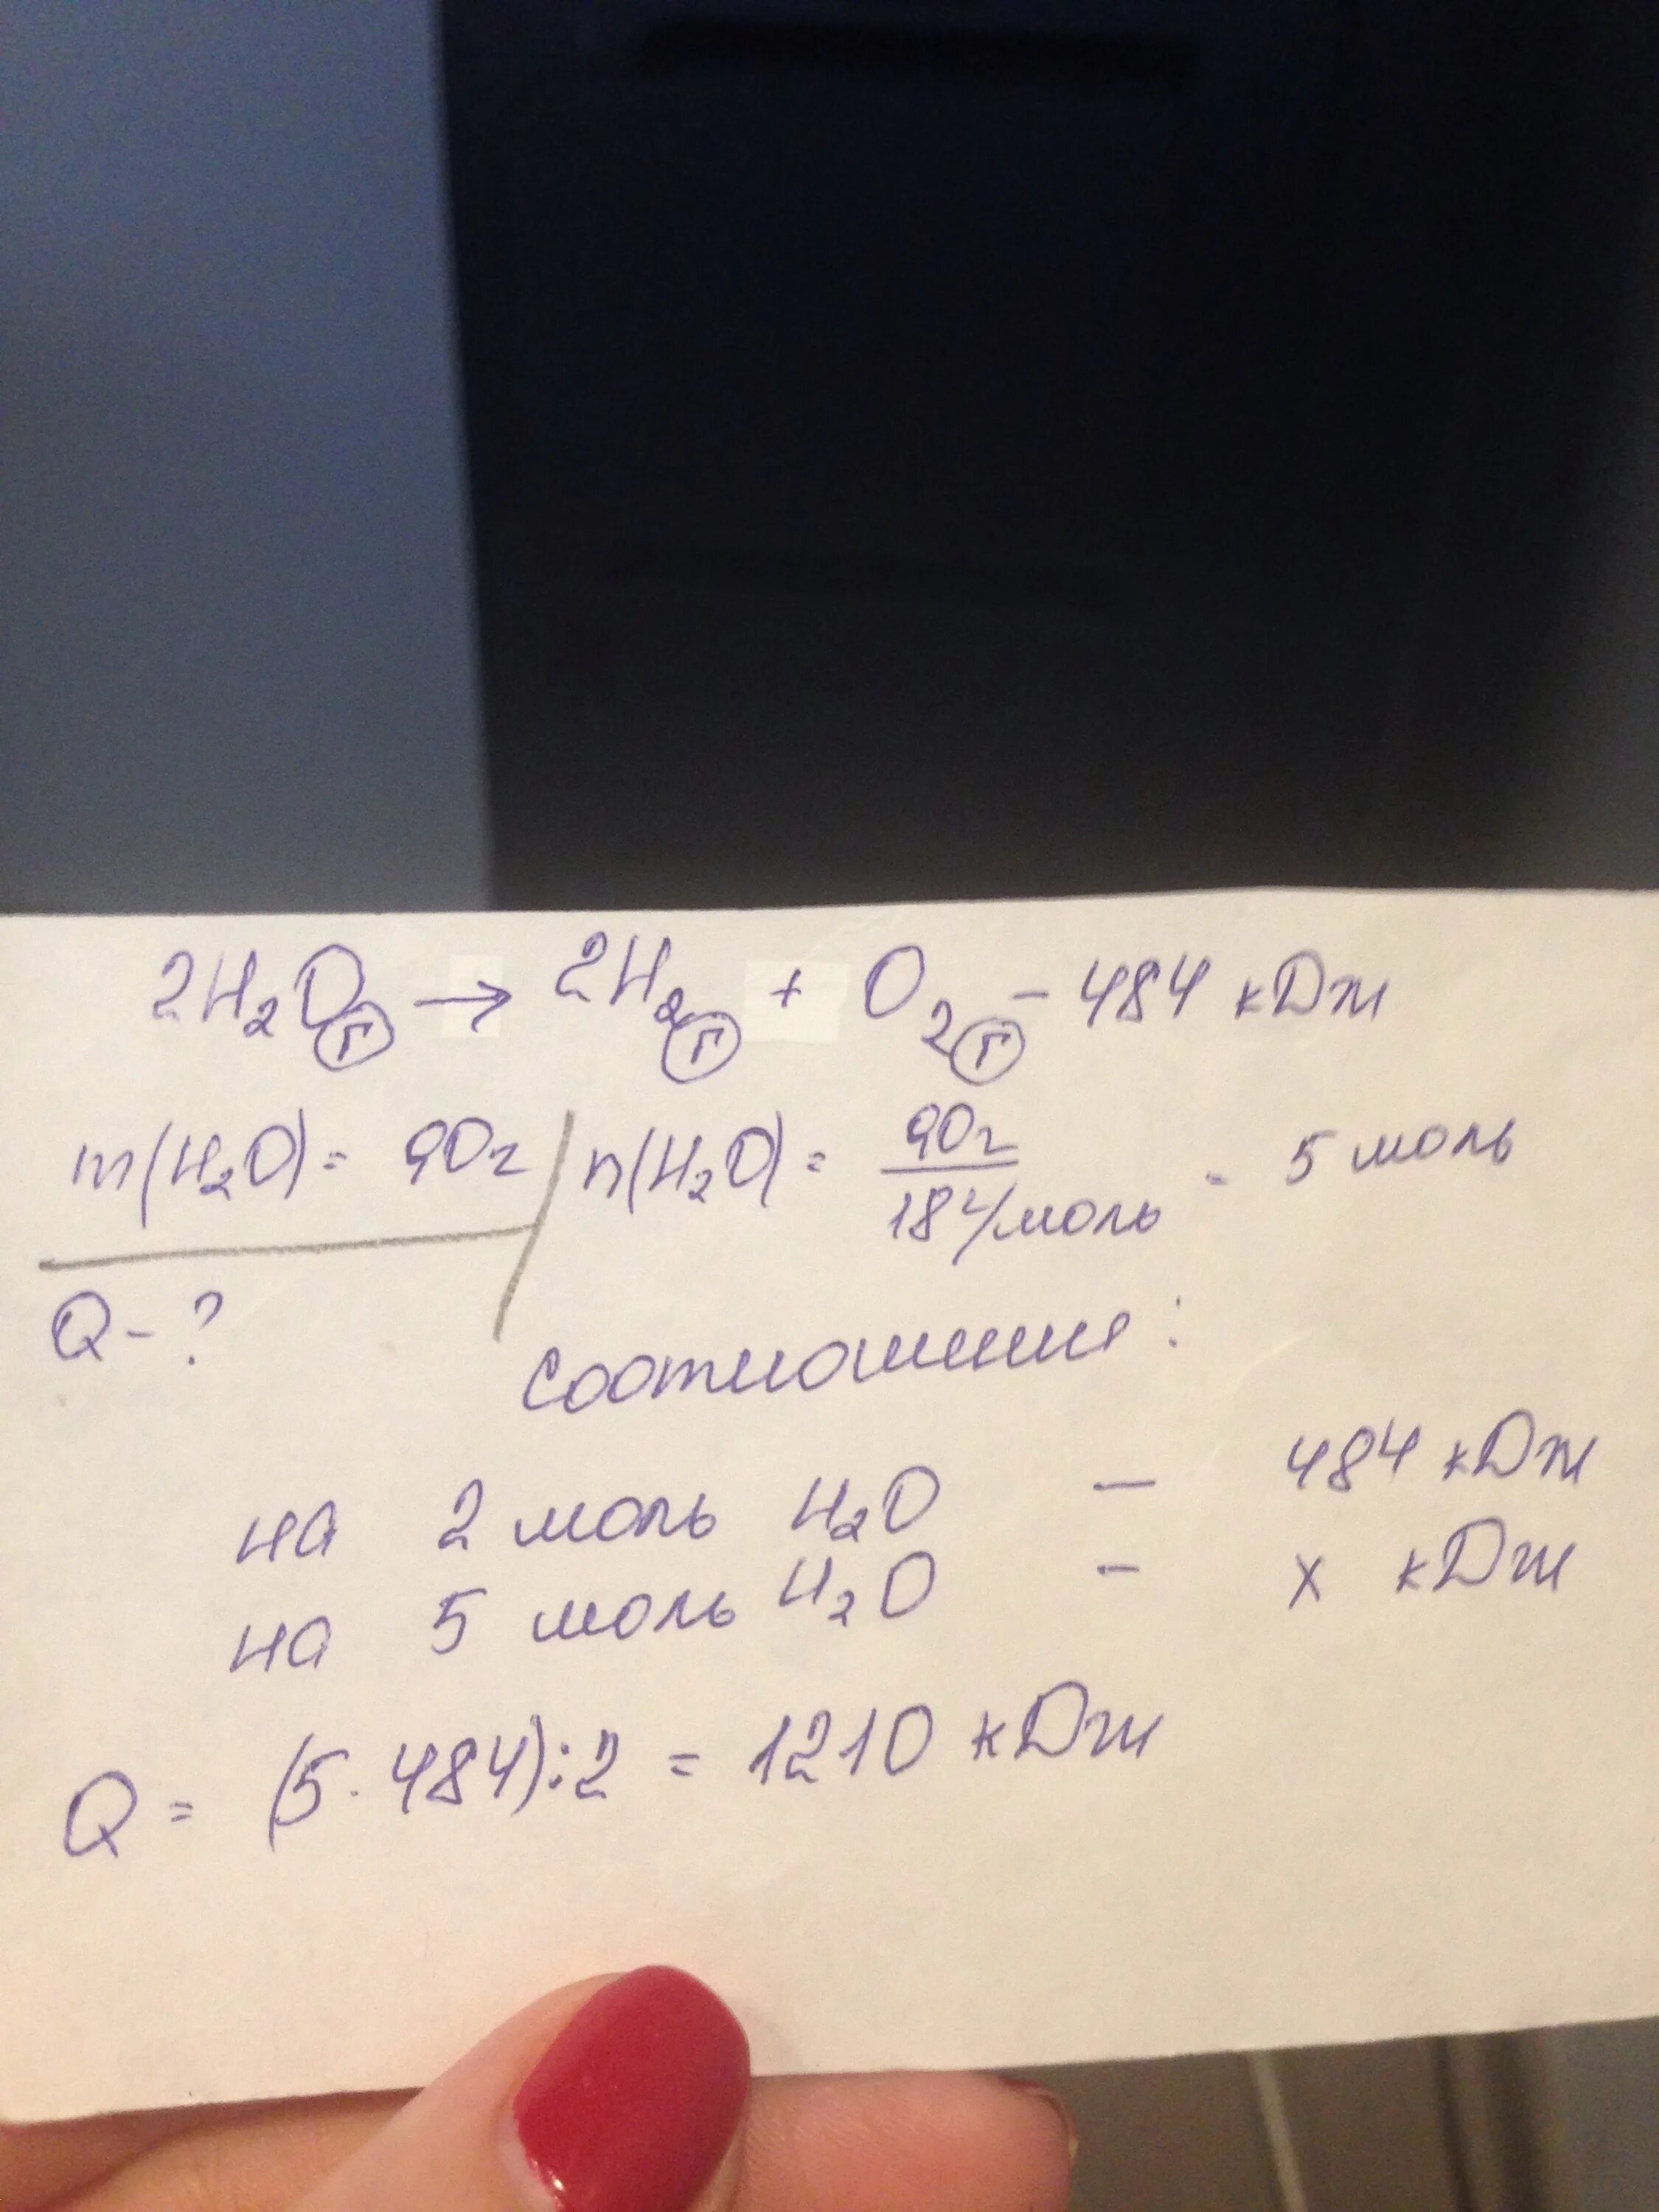 2H₂O(г) → 2H₂(г) + O₂(г) - 484 кДж
m(H₂O) = 90г / n(H₂O) = 90г / 18г/моль = 5 моль
Q - ?
соотношение:
на 2 моль H₂O — 484 кДж
на 5 моль H₂O - x кДж
Q = (5 · 484):2 = 1210 кДж